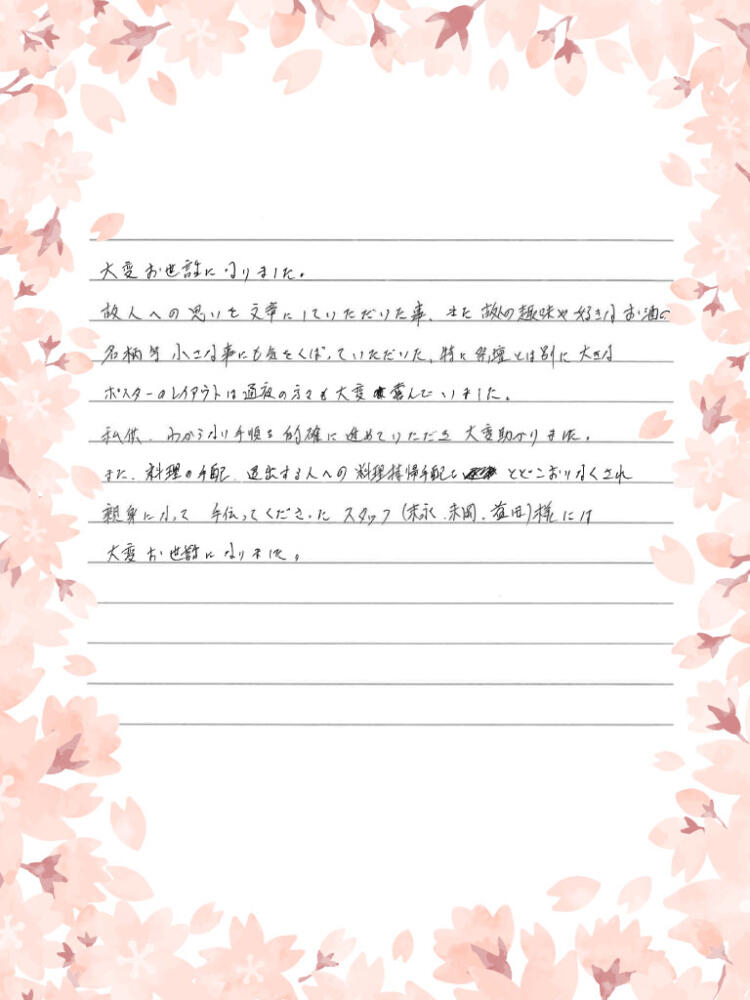 大変お世話になりました。
故人への思いを文章にしていただいた事、また故人の趣味や好きなお酒の
名柄等小さな事にも気をくばっていただいた、特に祭壇とは別に大きな
ポスターのレイアウトは通夜の方々も大変喜んでいました。
私供、わからない手順を的確に進めていただき大変助かりました。
また、料理の手配、退出する人への料理持帰手配も とどこおりなくされ
親身になって 手伝ってくださった スタッフ(末永、末岡、益田)様には
大変お世話になりました。